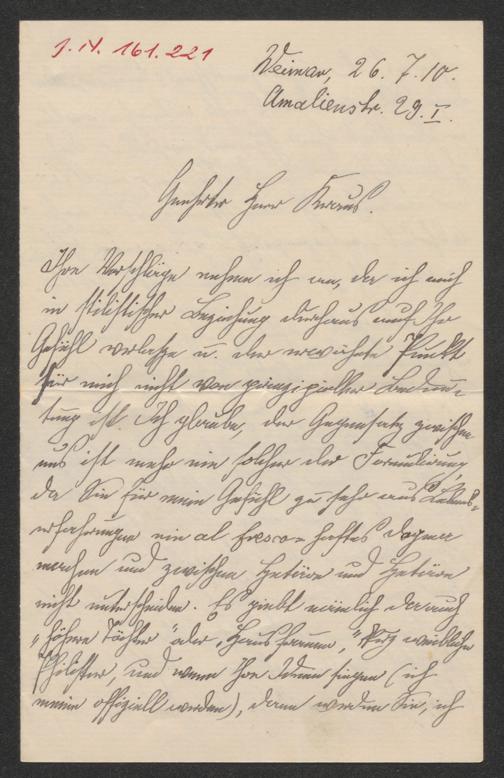 J. N. 161.221
Weimar, 26. 7. 10.
Amalienstr. 29. I.
Geehrter Herr Kraus.
Ihre Vorschläge nehme ich an, da ich mich
in stilistischer Beziehung durchaus auf Ihr
Gefühl verlasse u. der erwähnte Punkt
für mich nicht von prinzipieller Bedeu-
tung ist. Ich glaube, der Gegensatz zwischen
uns ist mehr ein solcher der Formulierung,
da Sie für mein Gefühl zu sehr aus Lebens-
erfahrungen ein al fresco-haftes Dogma
machen und zwischen Hetäre und Hetäre
nicht unterscheiden. Es giebt nämlich da auch
"höhere Töchter" oder "Hausfrauen," kurz weibliche
Philister, und wenn Ihre Ideen siegen (ich
meine offiziell werden), dann werden Sie, ich